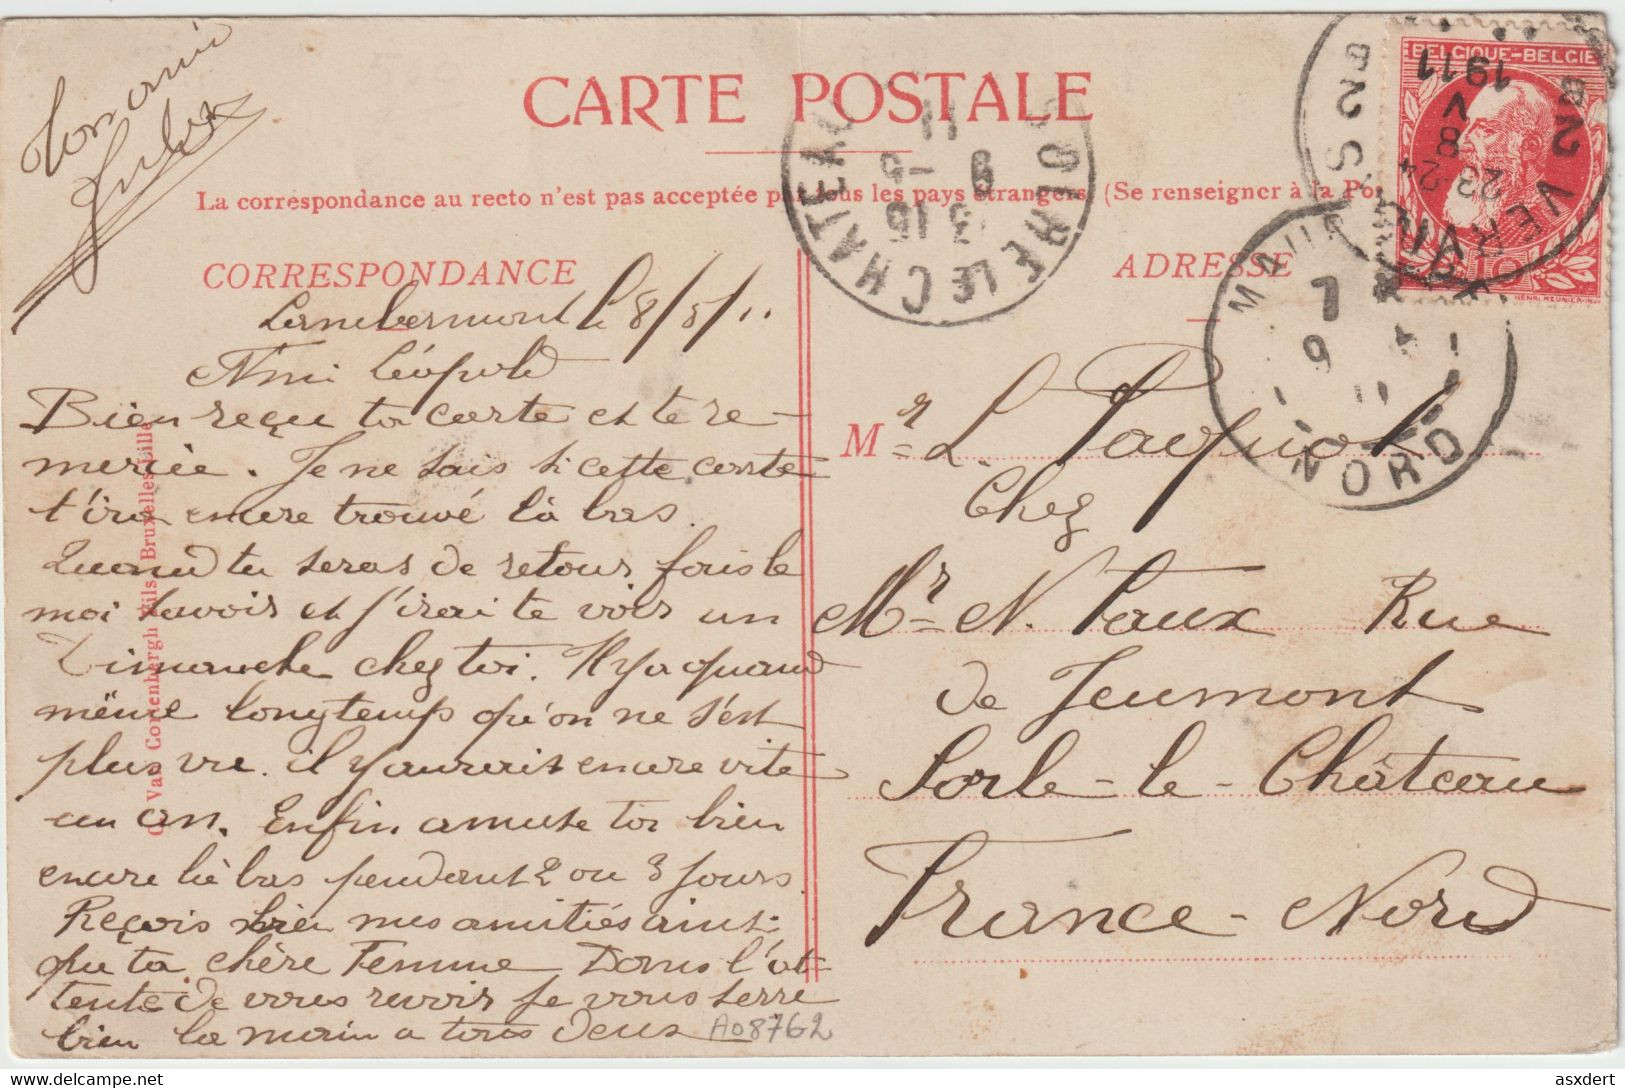 Ton ami
Jules
CARTE POSTALE
La correspondance au recto n'est pas acceptée par tous les pays étrangers. (Se renseigner à la Pos
CORRESPONDANCE
Lambermont le 8/5/11
Ami Léopold
Bien reçu ta carte et te re-
mercie. Je ne sais si cette carte
t'ira encore trouvé là bas.
Quand tu seras de retour fais le
moi savoir et j'irai te voir un
Dimanche chez toi. Il y a quand
même longtemps qu'on ne s'est
plus vu. il y aurait encore vite
un an. Enfin amuse toi bien
encore là bas pendant 2 ou 3 jours.
Reçois bien mes amitiés ainsi
que ta chère Femme Dans l'at-
tente de vous revoir je vous serre
bien la main a tous deux
A08762
G. Van Cortenbergh Fils Bruxelles-Lille
ADRESSE
Mr L. Pacquot
Chez
Mr N. Paux Rue
de Jeumont
Sorle-le-Château
France-Nord
BELGIQUE-BELGIE
10
HENRI MEUNIER-INV
VERVIERS
1911
V
8
23-24
SOLRE LE CHATEAU
3 15
9 -5
11
NORD